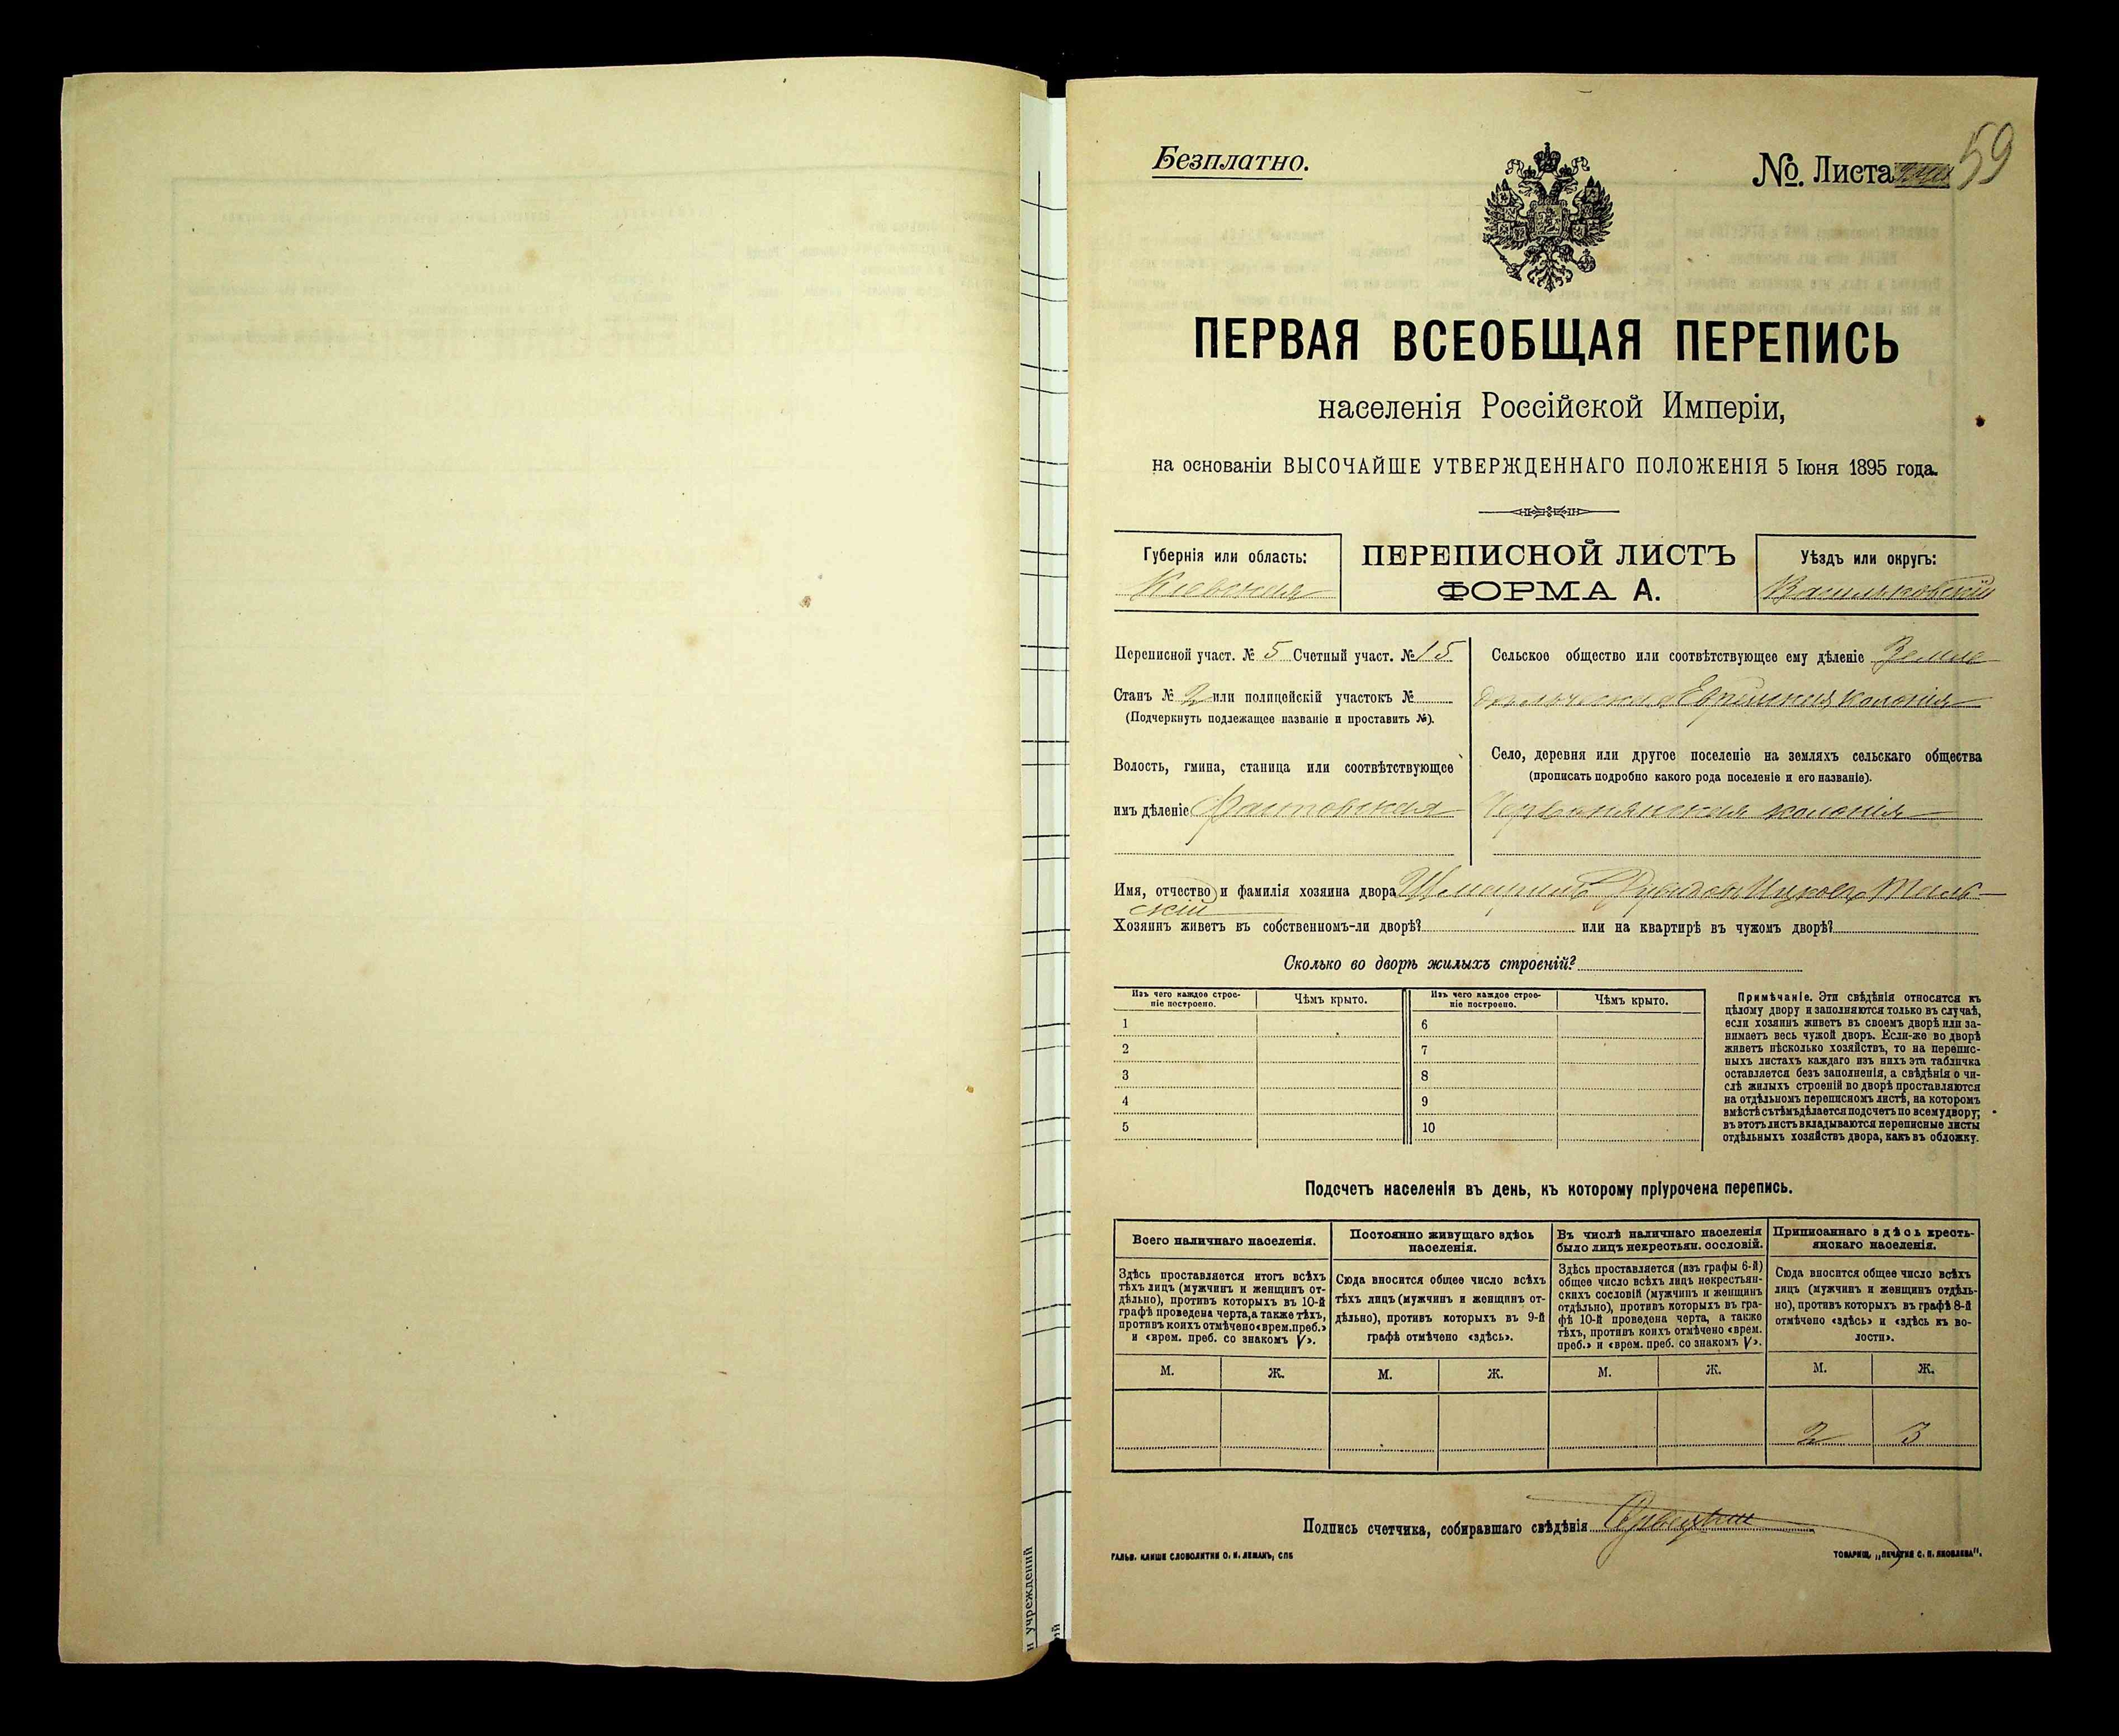 Безплатно.
№ Листа 59
ПЕРВАЯ ВСЕОБЩАЯ ПЕРЕПИСЬ
населенія Россійской Имперіи,
на основаніи ВЫСОЧАЙШЕ УТВЕРЖДЕННАГО ПОЛОЖЕНІЯ 5 Іюня 1895 года.
Губернія или область:
Кіевская
ПЕРЕПИСНОЙ ЛИСТЪ
ФОРМА А.
Уѣздъ или округъ:
Васильковскій
Переписной участ. № 5 Счетный участ. № 15
Станъ № 2 или полицейскій участокъ №
(Подчеркнуть подлежащее названіе и проставить №).
Волость, гмина, станица или соотвѣтствующее
имъ дѣленіе Фастовская
Сельское общество или соотвѣтствующее ему дѣленіе Земле
дѣльческая Еврейская колонія
Село, деревня или другое поселеніе на земляхъ сельскаго общества
(прописать подробно какого рода поселеніе и его названіе).
Червонянская колонія
Имя, отчество и фамилія хозяина двора
скій
Хозяинъ живетъ въ собственномъ-ли дворѣ? или на квартирѣ въ чужомъ дворѣ?
Сколько во дворѣ жилыхъ строеній?
Изъ чего каждое строе-
ніе построено.
Чѣмъ крыто.
Изъ чего каждое строе-
ніе построено.
Чѣмъ крыто.
1 6
2 7
3 8
4 9
5 10
Примѣчаніе. Эти свѣдѣнія относятся къ
цѣлому двору и заполняются только въ случаѣ,
если хозяинъ живетъ въ своемъ дворѣ или за-
нимаетъ весь чужой дворъ. Если-же во дворѣ
живетъ нѣсколько хозяйствъ, то на перепис-
ныхъ листахъ каждаго изъ нихъ эта табличка
оставляется безъ заполненія, а свѣдѣнія о чи-
слѣ жилыхъ строеній во дворѣ проставляются
на отдѣльномъ переписномъ листѣ, на которомъ
вмѣстѣ съ тѣмъ дѣлается подсчетъ по всему двору;
въ этотъ листъ вкладываются переписные листы
отдѣльныхъ хозяйствъ двора, какъ въ обложку.
Подсчетъ населенія въ день, къ которому пріурочена перепись.
Всего наличнаго населенія.
Здѣсь проставляется итогъ всѣхъ
тѣхъ лицъ (мужчинъ и женщинъ от-
дѣльно), противъ которыхъ въ 10-й
графѣ проведена черта, а также тѣхъ,
противъ коихъ отмѣчено «врем. преб.»
и «врем. преб. со знакомъ V».
М. Ж.
Постоянно живущаго здѣсь
населенія.
Сюда вносится общее число всѣхъ
тѣхъ лицъ (мужчинъ и женщинъ от-
дѣльно), противъ которыхъ въ 9-й
графѣ отмѣчено «здѣсь».
М. Ж.
Въ числѣ наличнаго населенія
было лицъ некрестьян. сословій.
Здѣсь проставляется (изъ графы 6-й)
общее число всѣхъ лицъ некрестьян-
скихъ сословій (мужчинъ и женщинъ
отдѣльно), противъ которыхъ въ гра-
фѣ 10-й проведена черта, а также
тѣхъ, противъ коихъ отмѣчено «врем.
преб.» и «врем. преб. со знакомъ V».
М. Ж.
Приписаннаго здѣсь кресть-
янскаго населенія.
Сюда вносится общее число всѣхъ
лицъ (мужчинъ и женщинъ отдѣль-
но), противъ которыхъ въ графѣ 8-й
отмѣчено «здѣсь» и «здѣсь къ во-
лости».
М. Ж.
2 3
Подпись счетчика, собиравшаго свѣдѣнія
ГАЛЬВ. КЛИШЕ СЛОВОЛИТНИ О. И. ЛЕМАНЪ, СПБ
ТОВАРИЩ. „ПЕЧАТНЯ С. П. ЯКОВЛЕВА".
учреждений